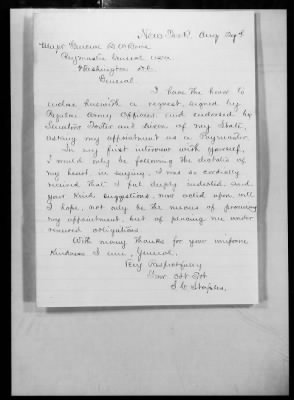 New York, Aug
Major General
Paymaster General USA
Washington D.C.
General,
I have the honor to
enclose herewith a request, signed by
Regular Army Officers, and endorsed by
Senators Foster and Dixon of my State,
asking my appointment as a Paymaster.
In my first interview with yourself,
I would only be following the dictates of
my heart, in saying, I was so cordially
received that I felt deeply indebted, and
your kind suggestions, now acted upon, will
I hope, not only be the means of
my appointment, but of placing me under
obligations.
With many thanks for your
kindness I am, General,
Very Respectfully
Your Obt Svt
Staples.